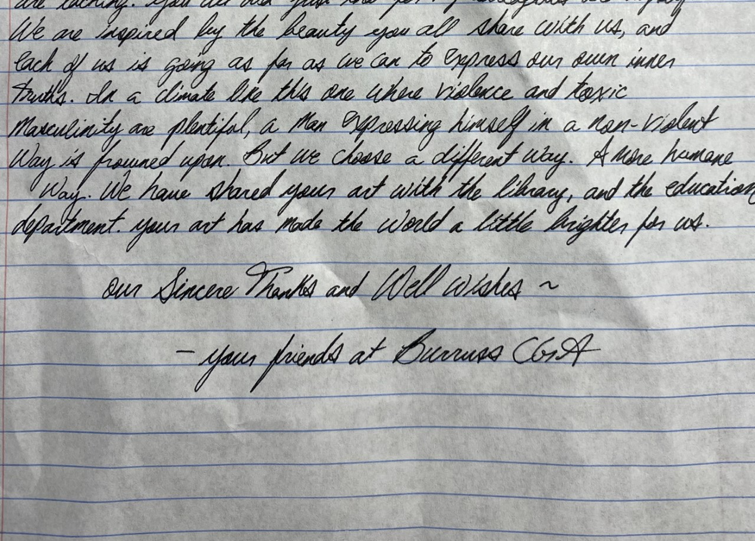 We are inspired by the beauty you all share with us, and
each of us is going as far as we can to express our own inner
truths. In a climate like this one where violence and toxic
Masculinity are plentiful, a man expressing himself in a non-violent
Way is frowned upon. But we choose a different way. A more humane
Way. We have shared your art with the library, and the education
department. your art has made the world a little brighter for us.
our Sincere Thanks and Well wishes ~
- your friends at Burruss CGA